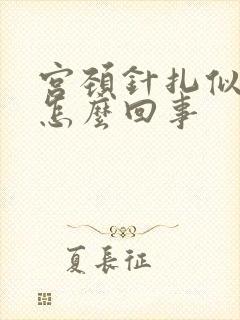 宮頸針扎似
怎麼回事
夏長征